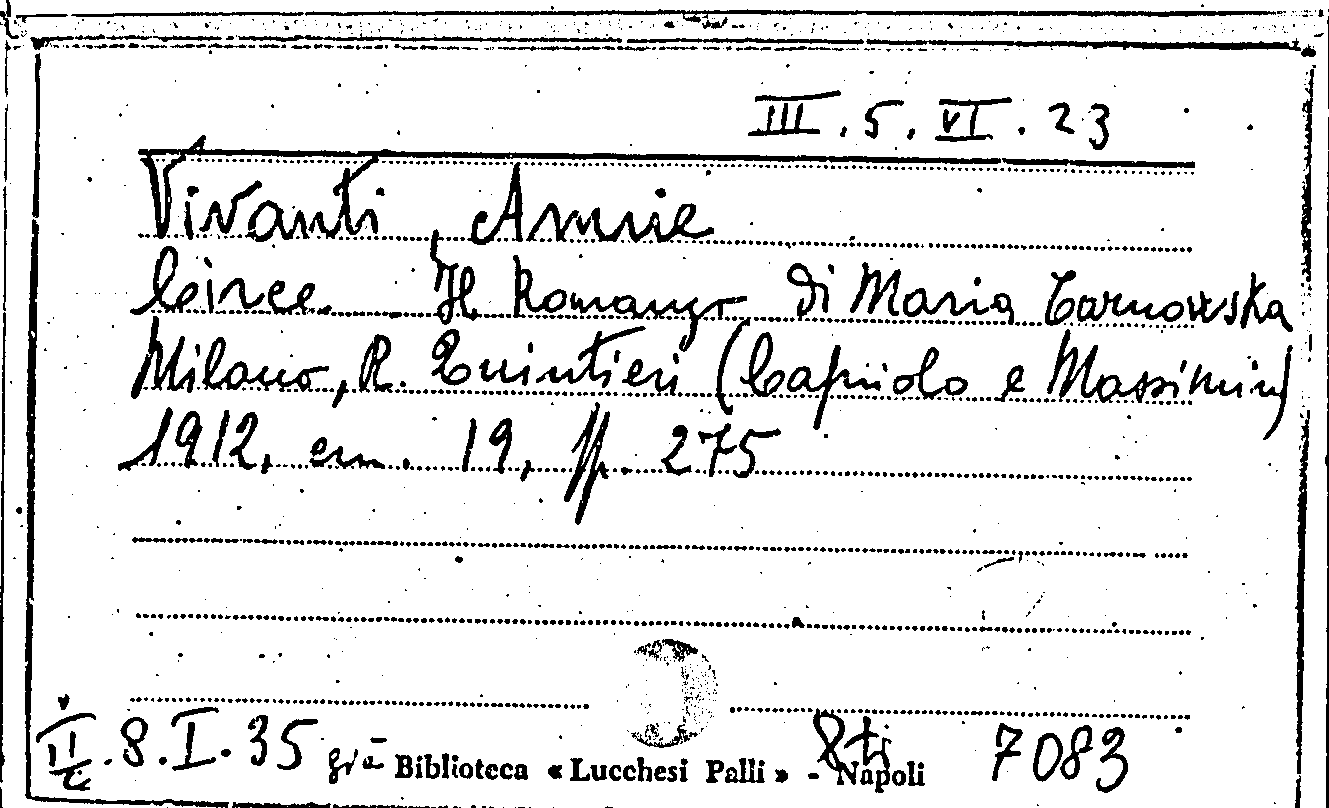 III. 5. VI. 23
Vivanti, Annie
Circe. Il Romanzo di Maria Tarnowska
Milano, R. Quintieri (Capriolo e Massimin)
1912, cm. 19, pp. 275
8. I. 35 già Biblioteca « Lucchesi Palli » - Napoli 7083